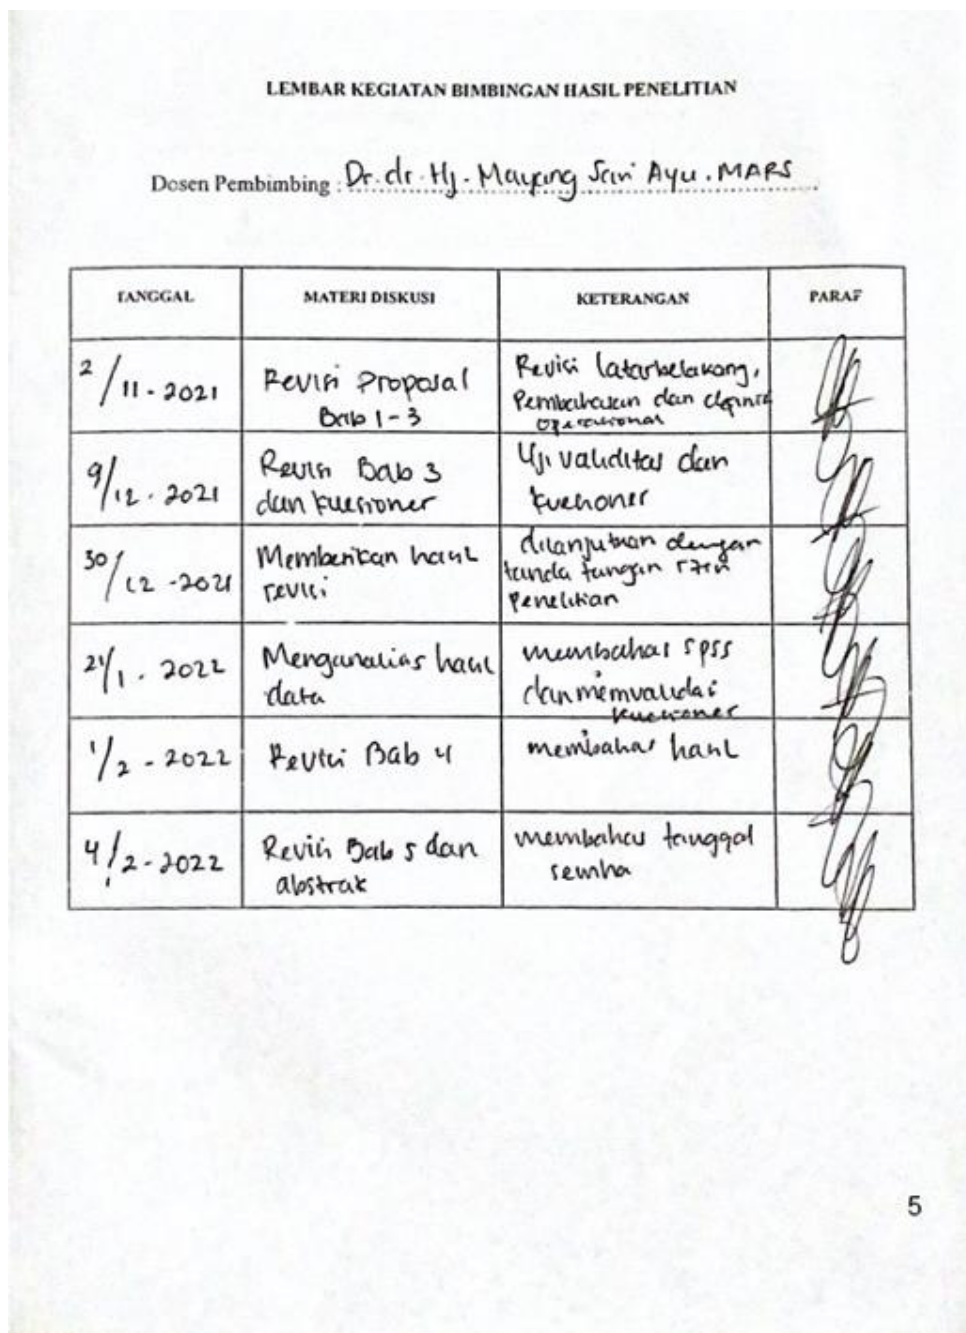 LEMBAR KEGIATAN BIMBINGAN HASIL PENELITIAN
Dosen Pembimbing : Dr. dr. Hj. Mayang Sari Ayu. MARS
TANGGAL MATERI DISKUSI KETERANGAN PARAF
2/11-2021
Revisi Proposal
Bab 1-3
Revisi latarbelakang,
Pembahasan dan
operasional
9/12-2021
Revisi Bab 3
dan kuesioner
Uji validitas dan
kuesioner
30/12-2021
Memberikan hasil
revisi
dilanjutkan dengan
tanda tangan izin
Penelitian
/1-2022
Menganalias hasil
data
membahas spss
dan memvalidai
kuesioner
1/2-2022
Revisi Bab 4
membahas hasil
4/2-2022
Revisi Bab 5 dan
abstrak
membahas tanggal
semha
5